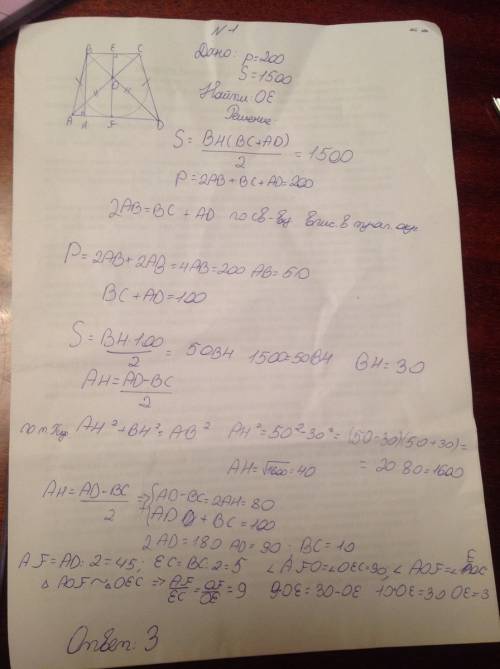 N 1
B E C
O
A H F D
Дано: P=200
S=1500
Найти: OE
Решение
S = BH(BC+AD)/2 = 1500
P=2AB+BC+AD=200
2AB=BC+AD по св-ву впис. в трап. окр.
P=2AB+2AB=4AB=200 AB=50
BC+AD=100
S=BH·100/2 = 50BH 1500=50BH BH=30
AH=AD-BC/2
по т. Пиф AH²+BH²=AB² AH²=50²-30²=(50-30)(50+30)=
AH=√1600=40 =20·80=1600
AH=AD-BC/2 => {AD-BC=2AH=80
+ AD+BC=100
2AD=180 AD=90; BC=10
AF=AD:2=45; EC=BC:2=5 ∠AFO=∠OEC=90, ∠AOF=∠EOC
△AOF~△OEC => AF/EC=OF/OE=9 9OE=30-OE 10OE=30 OE=3
Ответ: 3